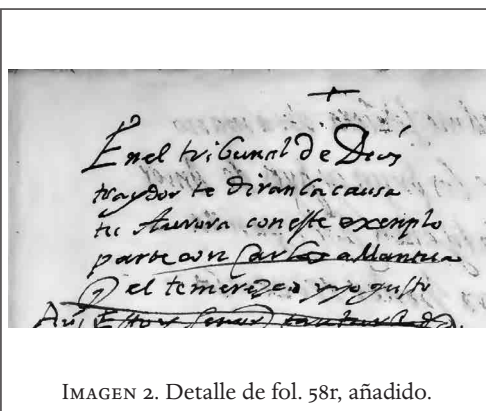 +
En el tribunal de Dios
traydor te diran la causa
tu Aurora con este exenplo
parte con Carlos a Mantua
q el te mereze y yo gusto
Aur. Estoy Señor
IMAGEN 2. Detalle de fol. 58r, añadido.